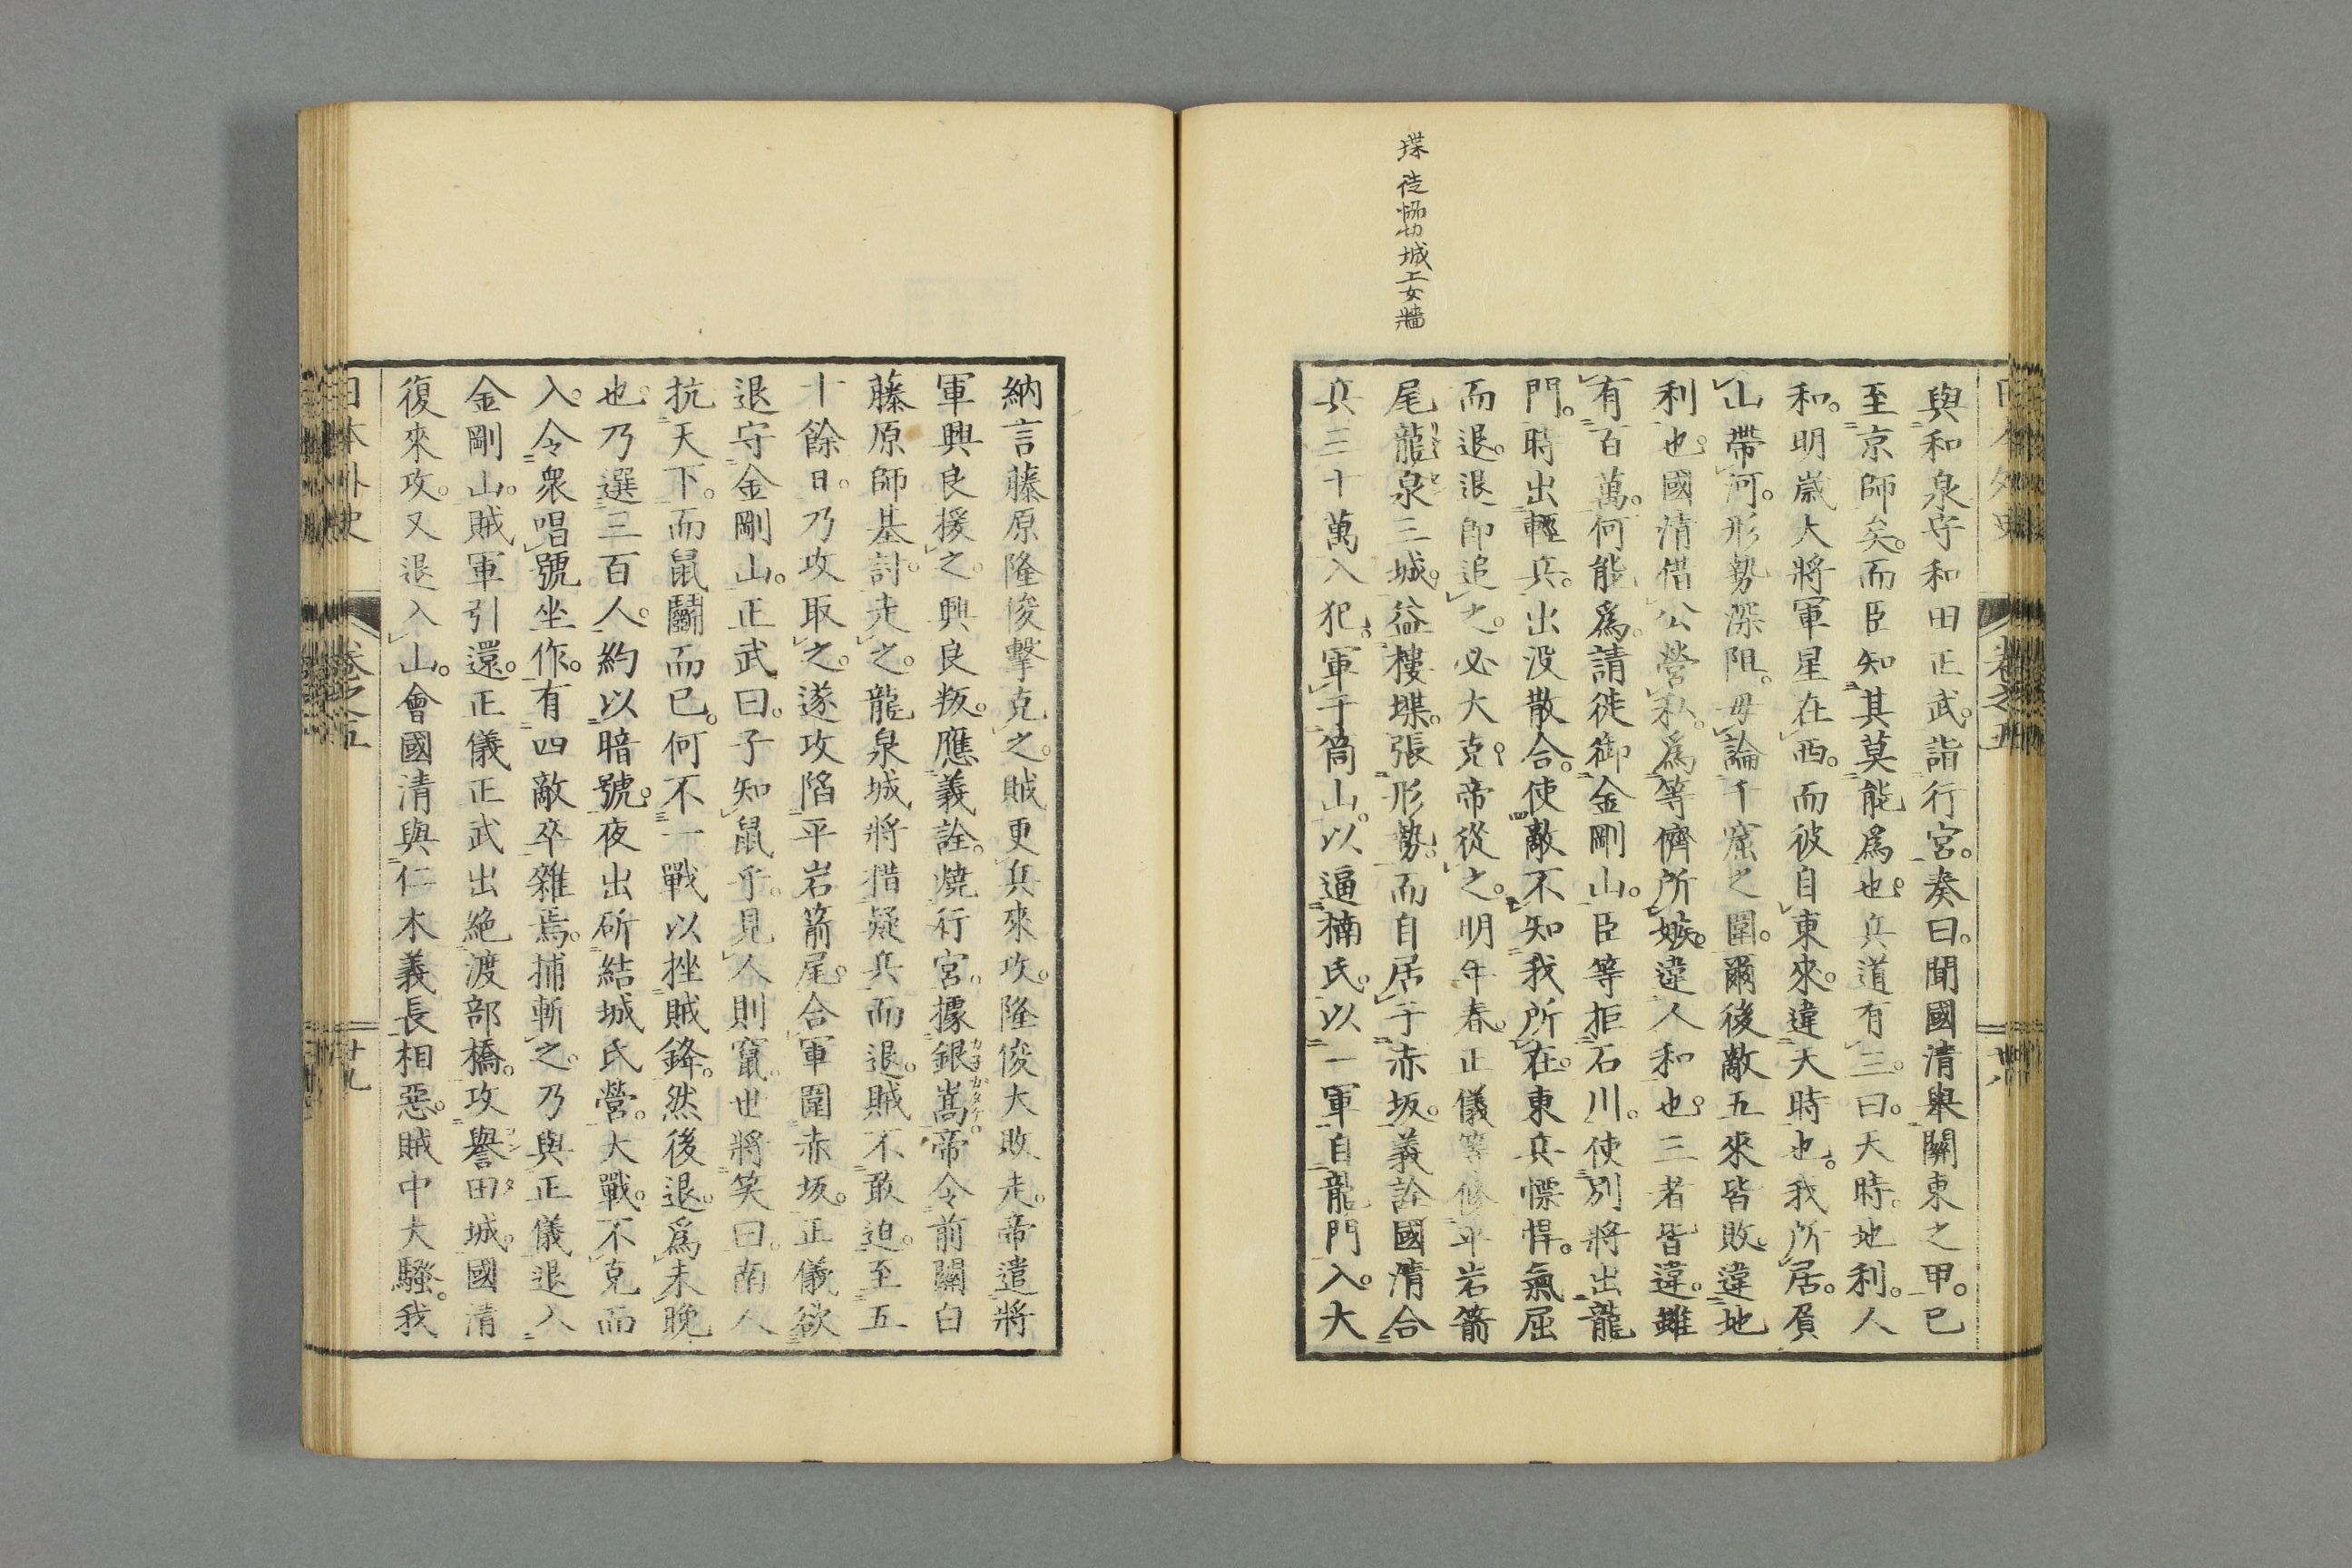 堞 徒協切城上女牆
與和泉守和田正武。詣行宮。奏曰。聞國清舉關東之甲。已
至京師矣。而臣知其莫能爲也。兵道有三。曰。天時。地利。人
和。明歲大將軍星在西。而彼自東來。違天時也。我所居。負
山帶河。形勢深阻。毋論千窟之圍。爾後敵五來皆敗。違地
利也。國清借公營私。爲等儕所嫉。違人和也。三者皆違。雖
有百萬。何能爲。請徙御金剛山。臣等拒石川。使別將出龍
門。時出輕兵。出沒散合。使敵不知我所在。東兵慓悍。氣屈
而退。退卽追之。必大克。帝從之。明年春。正儀等修平岩箭
尾龍泉三城。益樓堞。張形勢。而自居于赤坂。義詮國清合
兵三十萬入犯。軍于筒山。以逼楠氏。以一軍自龍門入。大
日本外史 卷之五 廿八
納言藤原隆俊擊克之。賊更兵來攻。隆俊大敗走。帝遣將
軍興良援之。興良叛。應義詮。燒行宮。據銀嵩。帝令前關白
藤原師基討走之。龍泉城將措疑兵而退。賊不敢迫。至五
十餘日。乃攻取之。遂攻陷平岩箭尾。合軍圍赤坂。正儀欲
退守金剛山。正武曰。子知鼠乎。見人則竄。世將笑曰。南人
抗天下。而鼠鬭而已。何不一戰以挫賊鋒。然後退。爲未晚
也。乃選三百人。約以暗號。夜出斫結城氏營。大戰。不克而
入。令衆唱號坐作。有四敵卒雜焉。捕斬之。乃與正儀退入
金剛山。賊軍引還。正儀正武出絶渡部橋。攻譽田城。國清
復來攻。又退入山。會國清與仁木義長相惡。賊中大騷。我
日本外史 卷之五 廿九